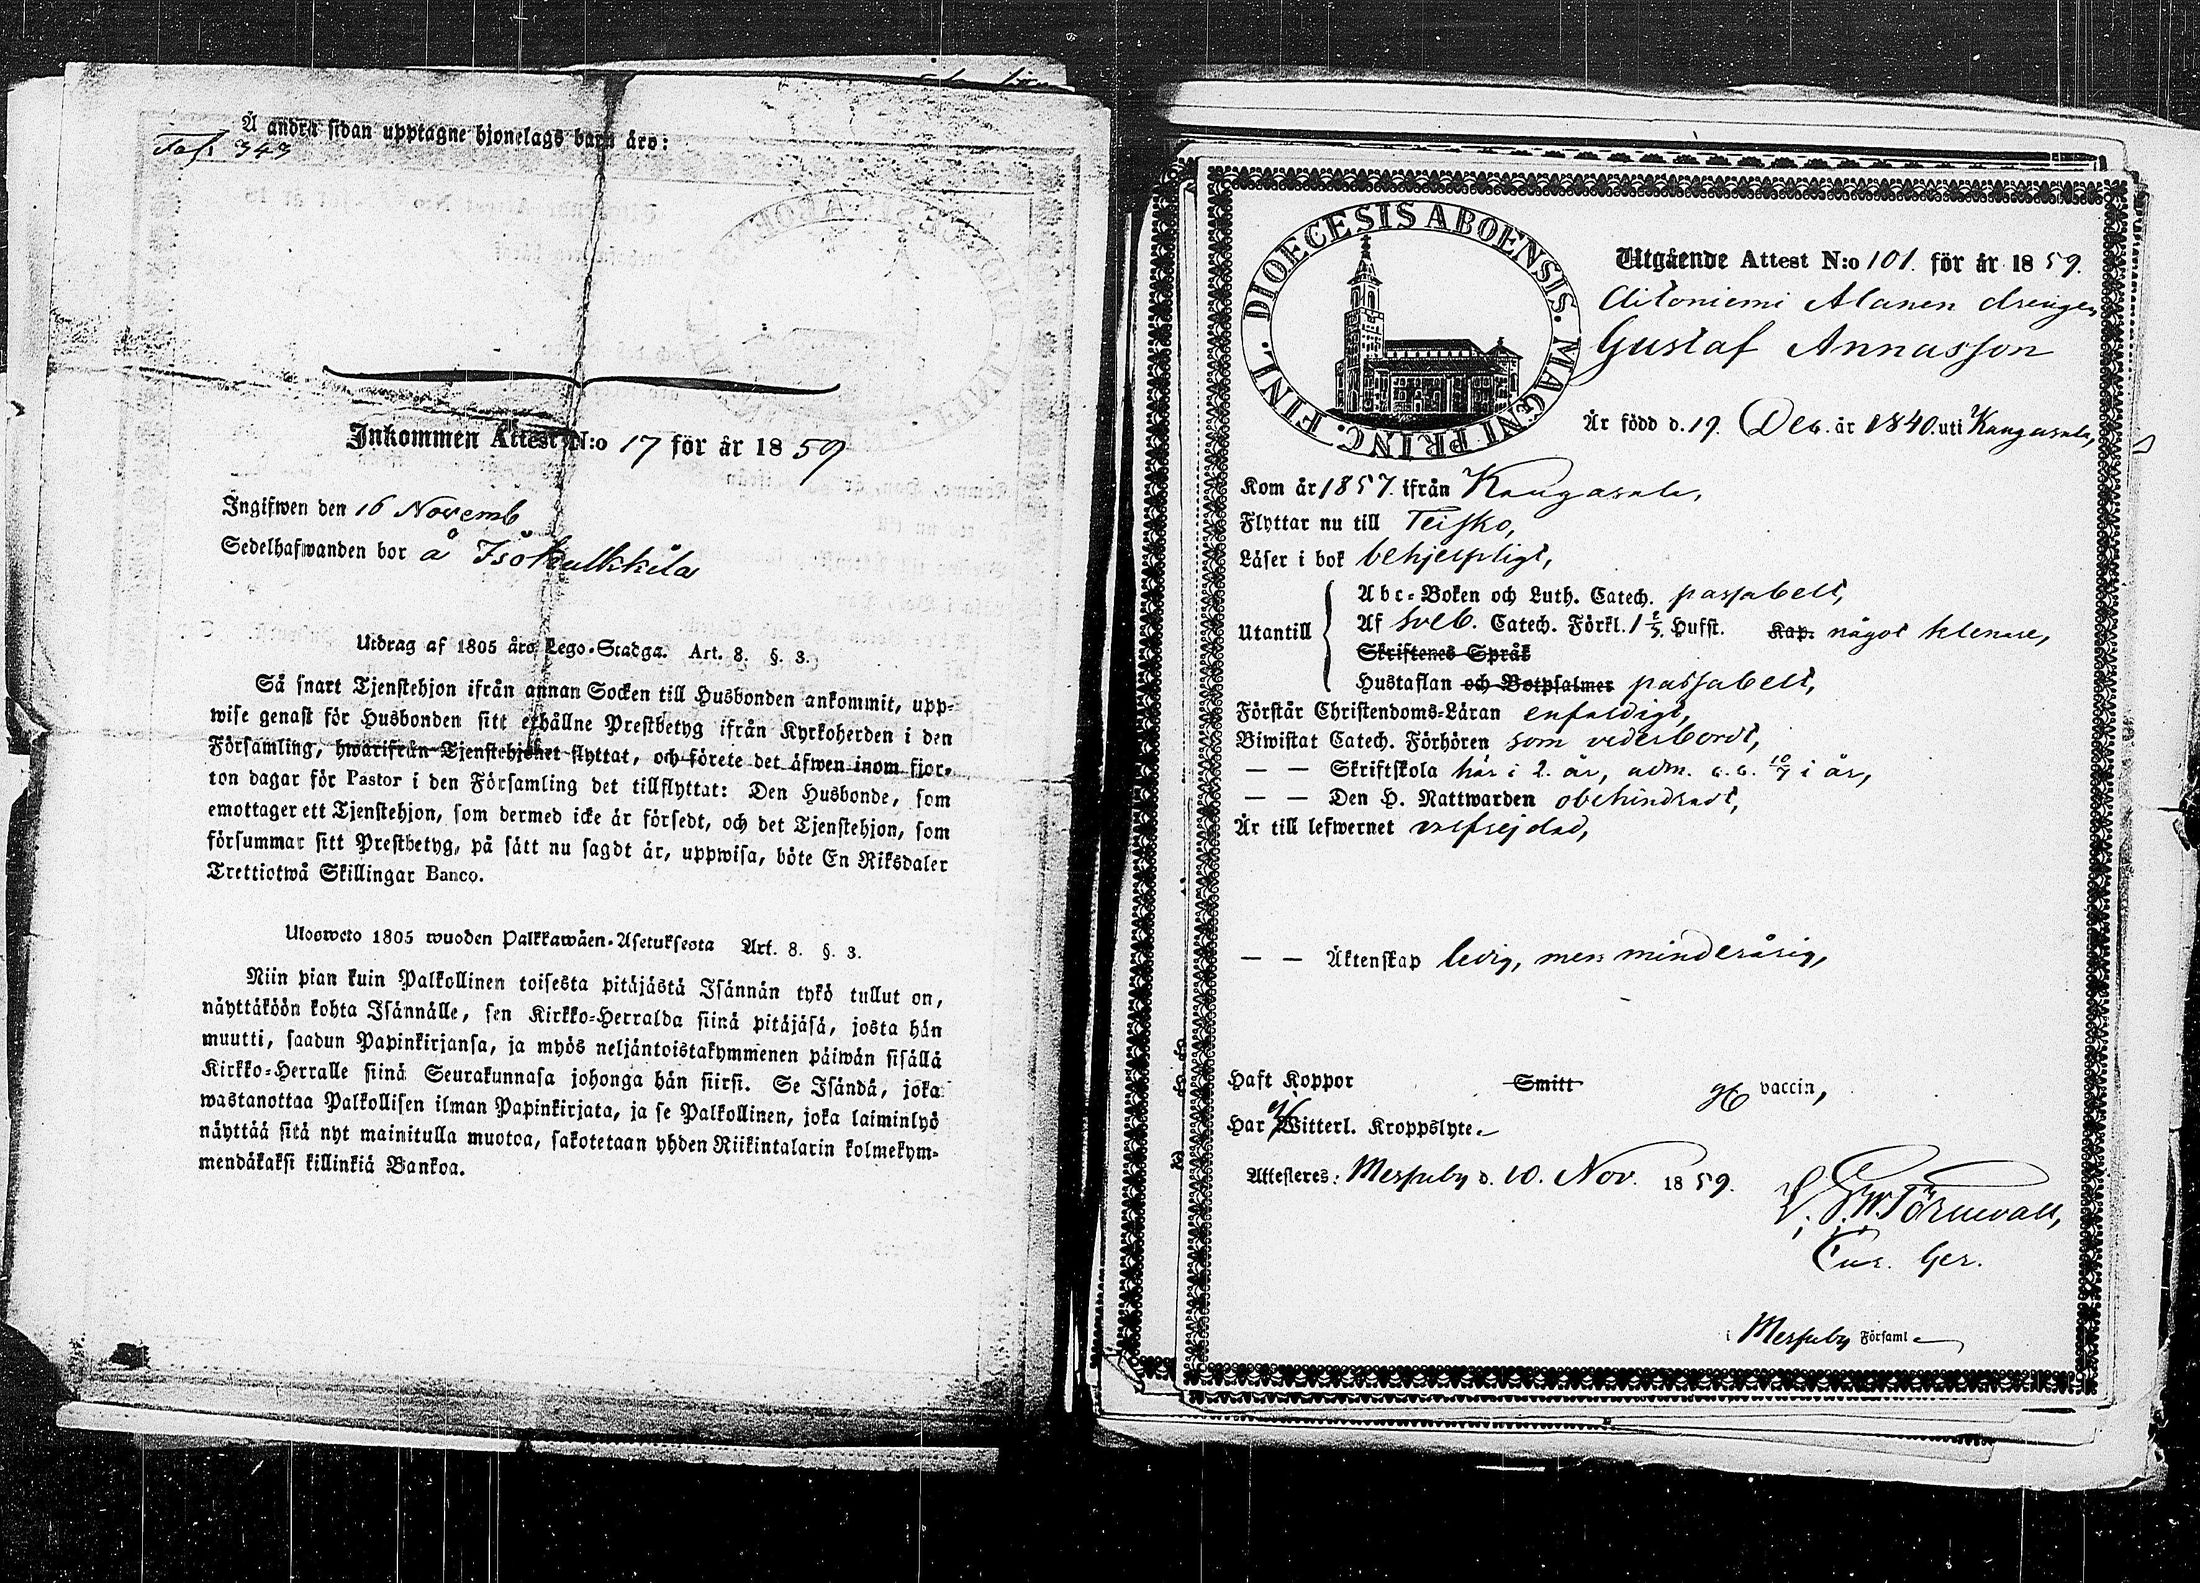 Å andra sidan upptagne hjonelags barn äro:
Fol. 343
Inkommen Attest N:o 17 för år 1859
Ingifwen den 16 Novemb.
Sedelhafwanden bor å Isokulkkila
Utdrag af 1805 års Lego-Stadga. Art. 8. §. 3.
Så snart Tjenstehjon ifrån annan Socken till Husbonden ankommit, upp-
wise genast för Husbonden sitt erhållne Prestbetyg ifrån Kyrkoherden i den
Församling, hwarifrån Tjenstehjonet flyttat, och förete det äfwen inom fjor-
ton dagar för Pastor i den Församling det tillflyttat: Den Husbonde, som
emottager ett Tjenstehjon, som dermed icke är försedt, och det Tjenstehjon, som
försummar sitt Prestbetyg, på sätt nu sagdt är, uppwisa, böte En Riksdaler
Trettiotwå Skillingar Banco.
Ulosweto 1805 wuoden Palkkawäen-Asetuksesta Art. 8. §. 3.
Niin pian kuin Palkollinen toisesta pitäjästä Isännän tykö tullut on,
näyttäköön kohta Isännälle, sen Kirkko-Herralda siinä pitäjäsä, josta hän
muutti, saadun Papinkirjansa, ja myös neljäntoistakymmenen päiwän sisällä
Kirkko-Herralle siinä Seurakunnasa johonga hän siirsi. Se Isändä, joka
wastanottaa Palkollisen ilman Papinkirjata, ja se Palkollinen, joka laiminlyö
näyttää sitä nyt mainitulla muotoa, sakotetaan yhden Riikintalarin kolmekym-
mendäkaksi killinkiä Bankoa.
DIOECESIS ABOENSIS. MAGNI PRINC. FINL.
Utgående Attest N:o 101. för år 1859.
Aitoniemi Alanen drengen
Gustaf Annasson
Är född d. 19. Dec. år 1840. uti Kangasala,
Kom år 1857. ifrån Kangasala,
Flyttar nu till Teisko,
Läser i bok behjelpligt,
Abc-Boken och Luth. Catech. passabelt,
Utantill Af Sveb. Catech. Förkl. 1 2/5. Hufst. Kap. något klenare,
Skriftenes Språk
Hustaflan och Botpsalmer passabelt,
Förstår Christendoms-Läran enfaldigt,
Biwistat Catech. Förhören som vederbordt,
— — Skriftskola här i 2. år, adm. c. c. 10/7 i år,
— — Den H. Nattwarden obehindradt,
Är till lefwernet välfrejdad,
— — Äktenskap ledig, men minderårig,
Haft Koppor Smitt gx vaccin,
Har Witterl. Kroppslyte.
Attesteres: Messuby d. 10. Nov. 1859.
G. W. Törnevall,
Cur. Ger.
i Messuby Församl.